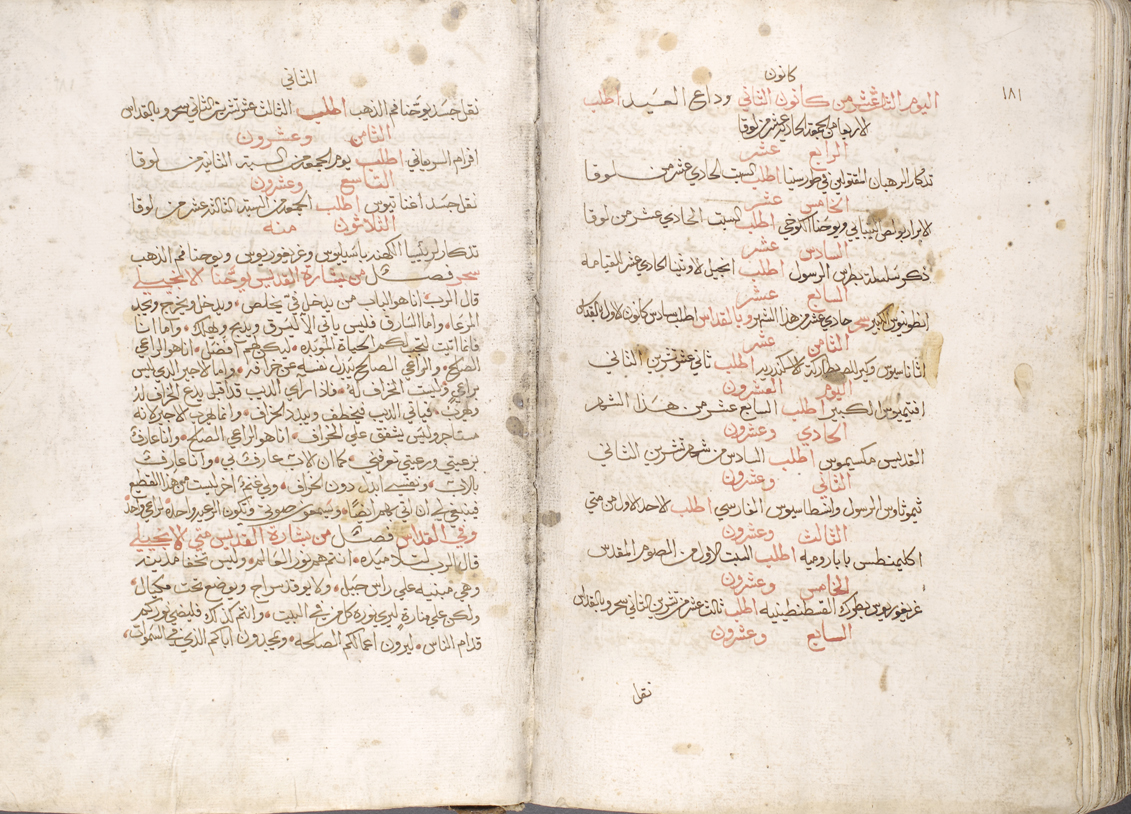 ١٨١
كانون
اليوم الثالث عشر من كانون الثاني وداع العيد اطلب
الاربعا من الجمعة الحادية عشر من لوقا
الرابع عشر
تذكار الرهبان المقتولين في طور سينا اطلب السبت الحادي عشر من لوقا
الخامس عشر
الابرار بولص التيبايي ويوحنا الكوخي اطلب السبت الحادي عشر من لوقا
السادس عشر
ذكر سلسلة بطرس الرسول اطلب انجيل الاوثينا الحادي عشر القيامه
السابع عشر
انطونيوس الكبير سحر حادي عشر من هذا الشهر وبالقداس اطلب سادس كانون الاول بالقداس
الثامن عشر
اثاناسيوس وكيرللص بطاركة الاسكندريه اطلب ثاني عشر تشرين الثاني
اليوم العشرون
افتيميوس الكبير اطلب السابع عشر من هذا الشهر
الحادي وعشرون
القديس مكسيموس اطلب السادس من شهر تشرين الثاني
الثاني وعشرون
تيموثاوس الرسول وانسطاسيوس الفارسي اطلب الاحد الاول من متي
الثالث وعشرون
اكليمنطس بابا روميه اطلب السبت الاول من الصوم المقدس
الخامس وعشرون
غريغوريوس بطرك القسطنطينيه اطلب ثالث عشر من تشرين الثاني سحر وبالقداس
السابع وعشرون
نقل
الثاني
نقل جسد يوحنا فم الذهب اطلب الثالث عشر تشرين الثاني سحر وبالقداس
الثامن وعشرون
افرام السرياني اطلب يوم الجمعه من السبة الثانية من لوقا
التاسع وعشرون
نقل جسد اغناتيوس اطلب الجمعه من السبة الثالثة عشر من لوقا
الثلاثون منه
تذكار لرئيسا الكهنه باسيليوس وغريغوريوس ويوحنا فم الذهب
سحر فصل من بشارة القديس يوحنا الانجيلي
قال الرب انا هو الباب من يدخل في يخلص ويدخل ويخرج ويجد
المرعا واما السارق فليس ياتي الا ليسرق ويذبح ويهلك واما انا
فانما اتيت لتحيا لكم الحياة المؤبده ليكن لهم افضل انا هو الراعي
الصالح والراعي الصالح يبذل نفسه عن خرافه واما الاجير الذي ليس
براعي وليست الخراف له فاذا راي الذيب قد اقبل يدع الخراف
ويهرب فياتي الذيب فيخطف ويبدد الخراف وانما يهرب الاجير لانه
مستاجر وليس يشفق علي الخراف انا هو الراعي الصالح وانا عارف
برعيتي ورعيتي تعرفني كما ان الاب عارف بي وانا عارف
بالاب ونفسي ابذل دون الخراف ولي غنم اخر ليست من هذا القطيع
فينبغي لي ان اتي بهم ايضا ويسمعون صوتي وتكون الرعيه واحده لراعي واحد
وفي القداس فصل من بشارة القديس متي الانجيلي
قال الرب لتلاميذه انتم هم نور العالم وليس تخفا مدينة
وهي مبنيه علي راس جبل ولا يوقد سراج ويوضع تحت مكيال
ولكن علي منارة ليري نوره كل من في البيت وانتم كذلك فليضي نوركم
قدام الناس ليرون اعمالكم الصالحه ويمجدون اباكم الذي في السموات